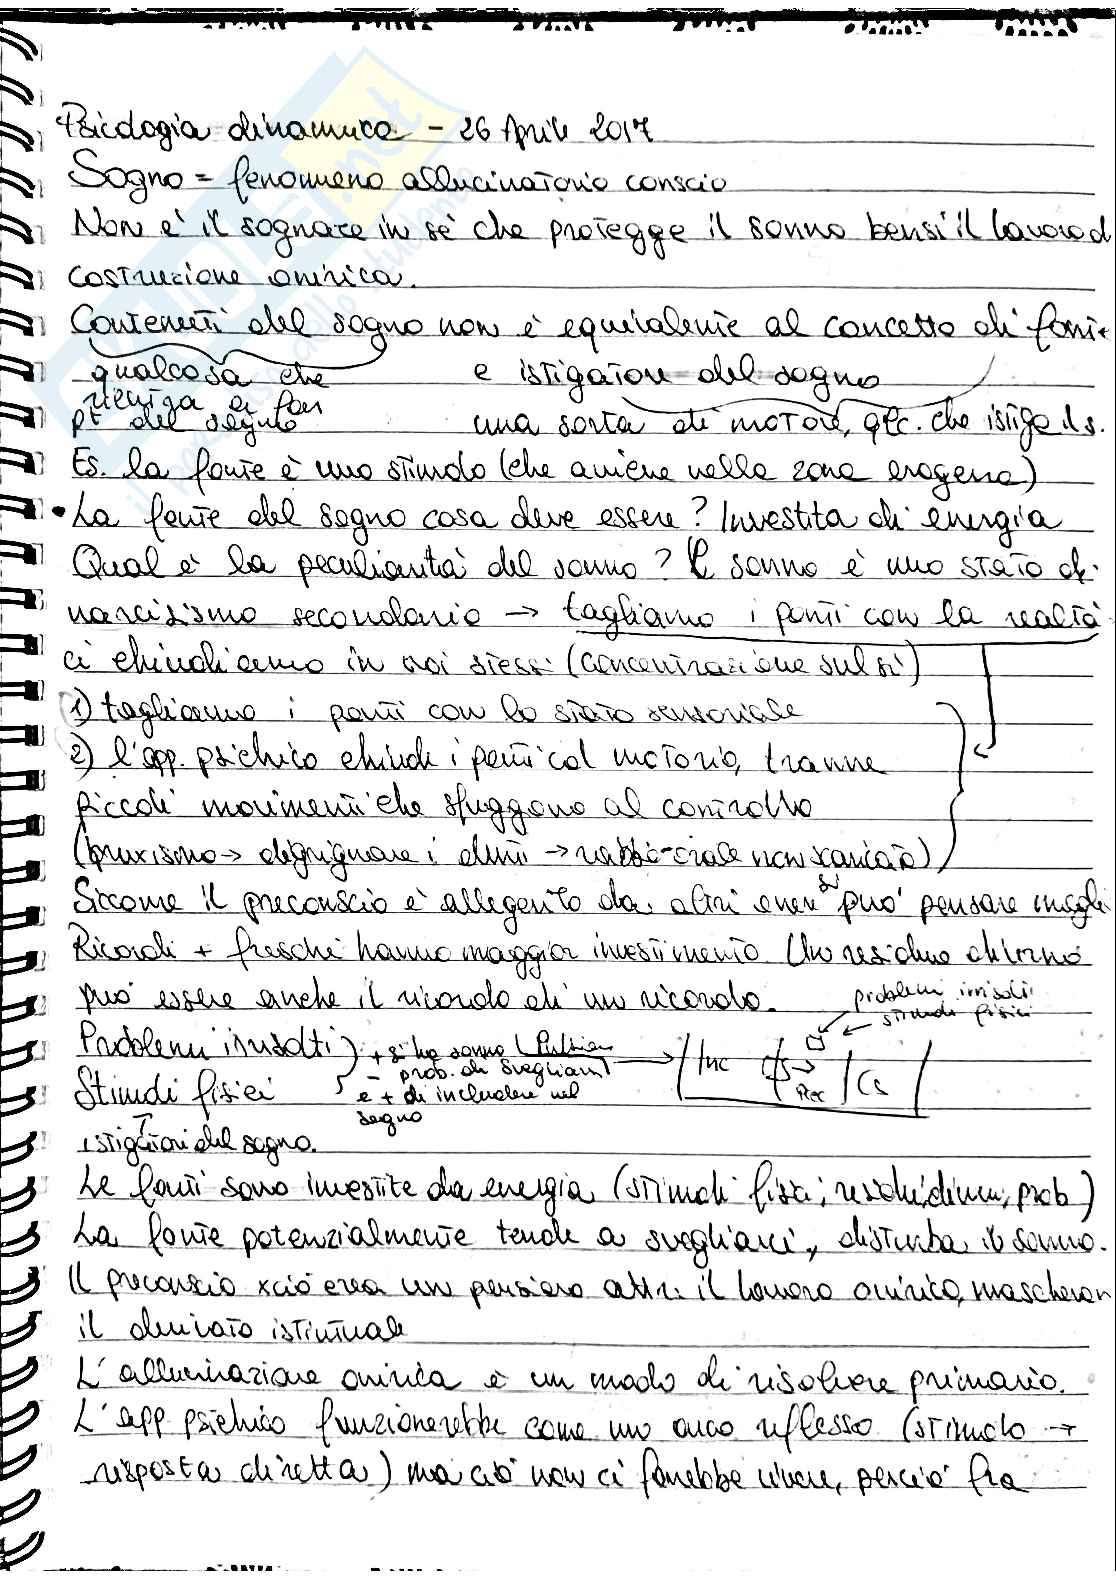 Psicologia dinamica - 26 Aprile 2017
Sogno = fenomeno allucinatorio conscio
Non è il sognare in sé che protegge il sonno bensì il lavoro d
costruzione onirica.
Contenuti del sogno non è equivalente al concetto di fonte
qualcosa che e istigatore del sogno
pt del sogno una sorta di motore, qlc. che istiga il s.
Es. la fonte è uno stimolo (che avviene nella zona erogena)
• La fonte del sogno cosa deve essere? Investita di energia
Qual è la peculiarità del sonno? Il sonno è uno stato di
narcisismo secondario → tagliamo i ponti con la realtà
ci chiudiamo in noi stessi (concentrazione sul sé)
1) tagliamo i ponti con lo stato sensoriale
2) l'app. psichico chiude i ponti col motorio, tranne
piccoli movimenti che sfuggono al controllo
(bruxismo → digrignare i denti → rabbia orale non scaricata)
Siccome il preconscio è da altri oneri si può pensare megli
Ricordi + freschi hanno maggior investimento. Un residuo diurno
può essere anche il ricordo di un ricordo.
problemi irrisolti
stimoli fisici
Problemi irrisolti
+ si ha sonno Pulsioni
- prob. di svegliarsi
Stimoli fisici
e + di includere nel
sogno
Inc
Prec
Cs
istigatori del sogno.
Le fonti sono investite da energia (stimoli fisici; residui diurni; prob)
La fonte potenzialmente tende a svegliarci, disturba il sonno.
Il preconscio xciò crea un pensiero attr. il lavoro onirico, mascheran
il derivato istintuale
L'allucinazione onirica è un modo di risolvere primario.
L'app. psichico funzionerebbe come un arco riflesso (stimolo →
risposta diretta) ma ciò non ci farebbe vivere, perciò fra